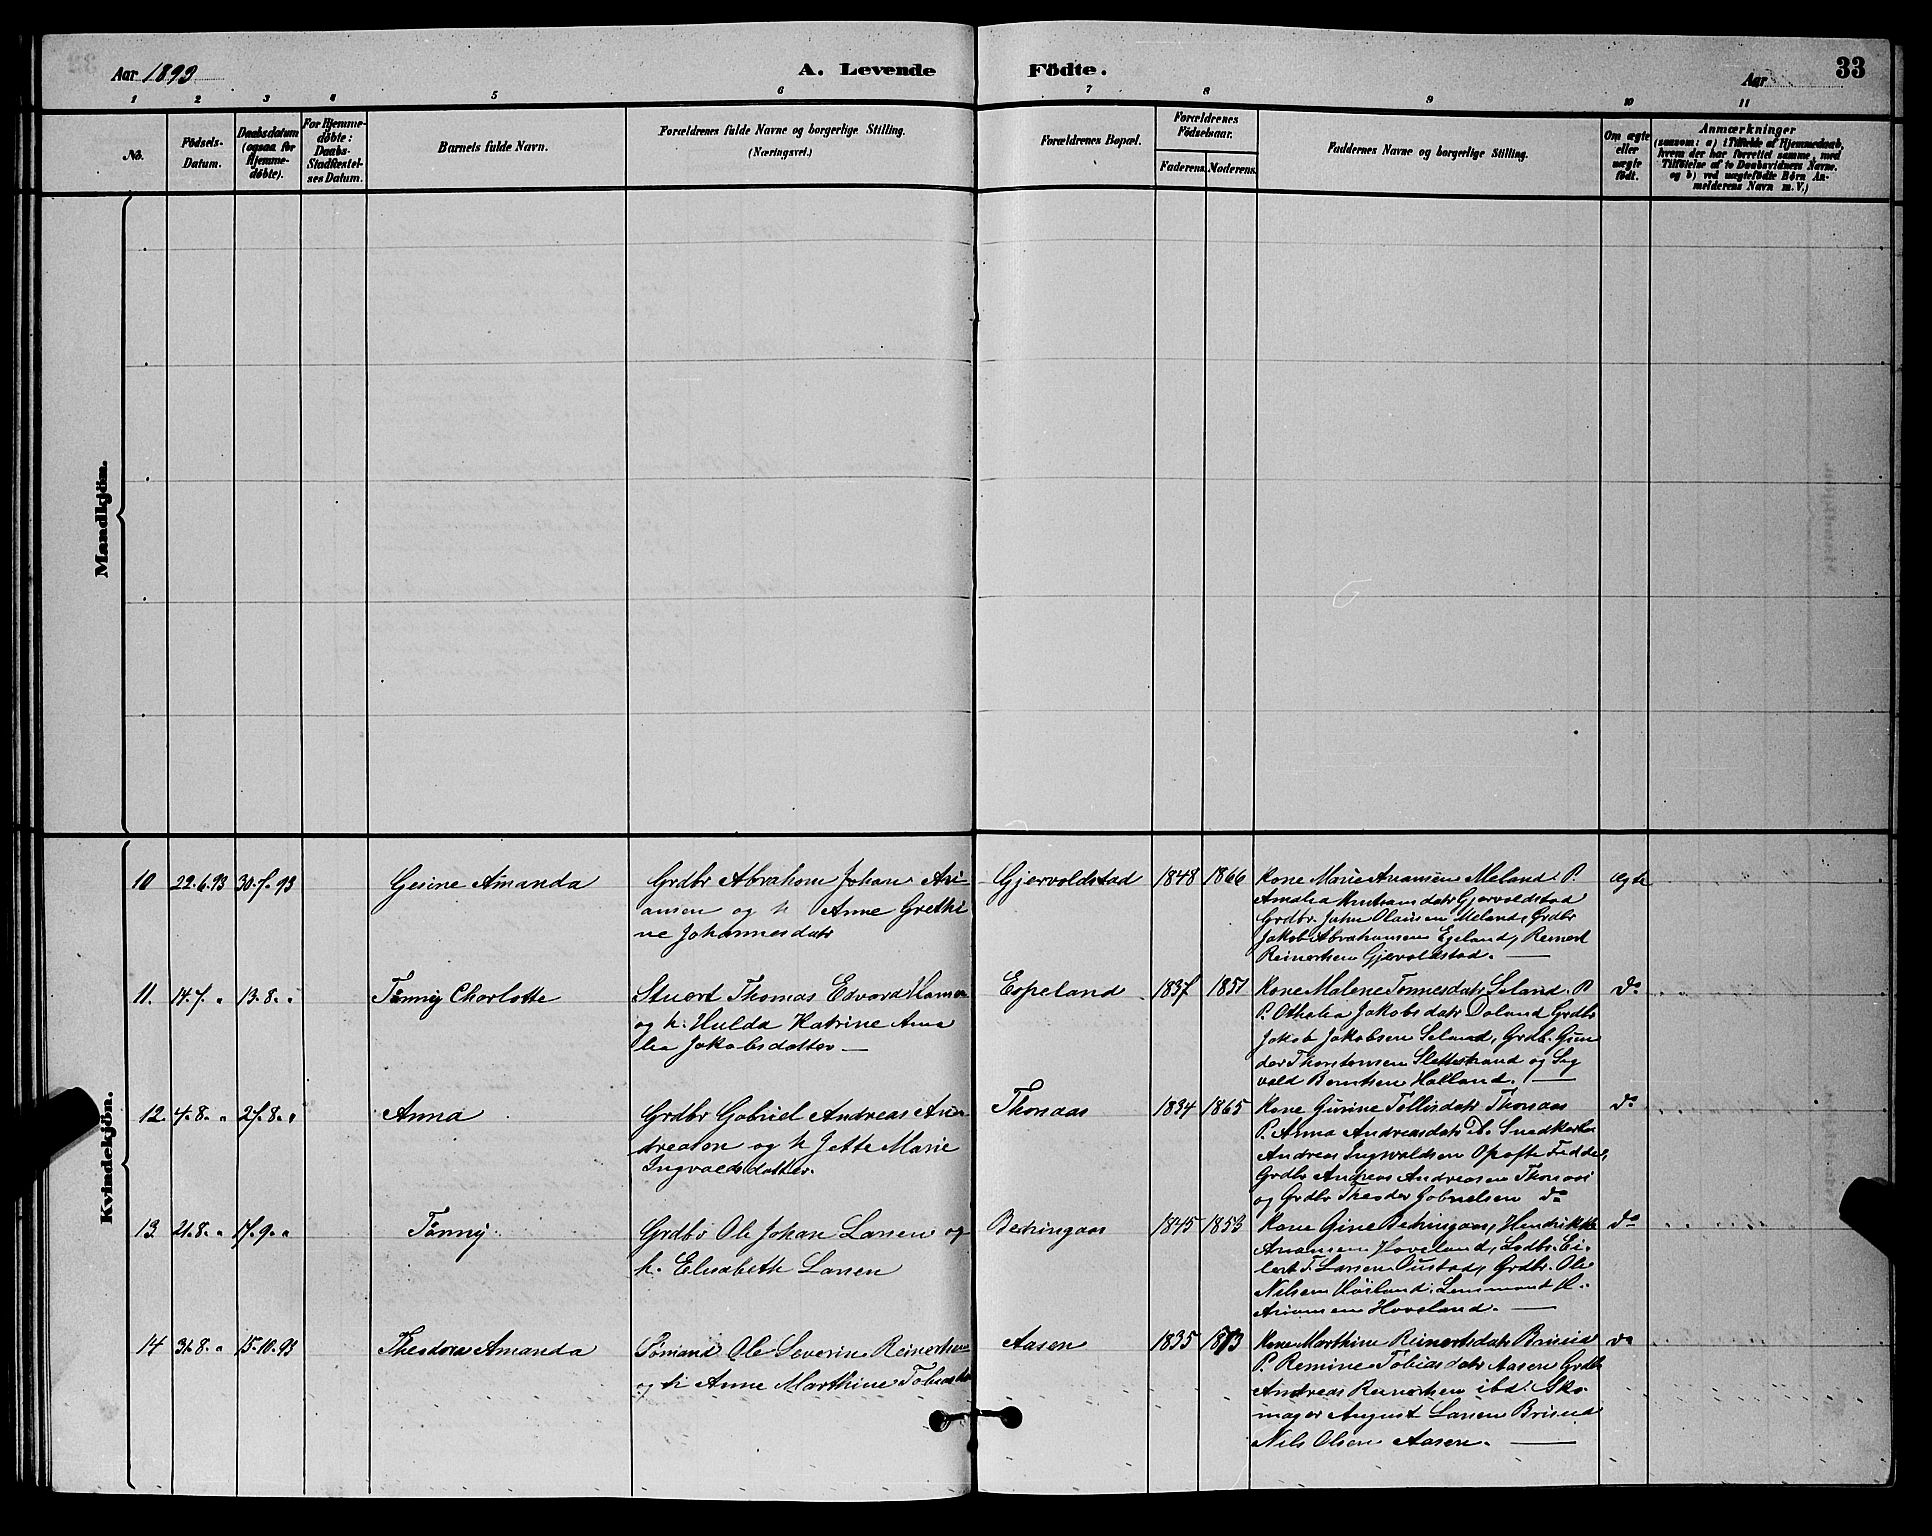 Aar 1893
A. Levende Födte.
Aar
33
1 2 3 4 5 6 7 8 9 10 11
No.
Födsels-
Datum.
Daabsdatum
(ogsaa for
Hjemme-
döbte).
For Hjemme-
döbte:
Daabs-
Stadfæstel-
ses Datum.
Barnets fulde Navn.
Forældrenes fulde Navne og borgerlige Stilling.
(Næringsvei.)
Forældrenes Bopæl.
Forældrenes
Födselsaar.
Faderens. Moderens.
Faddernes Navne og borgerlige Stilling.
Om ægte
eller
uægte
födt.
Anmærkninger
(saasom: a) i Tilfælde af Hjemmedaab,
hvem der har forrettet samme, med
Tilföielse af to Daabsvidners Navne.
og b) ved uægtefödte Börn An-
melderens Navn m. V.)
Mandkjön.
Kvindekjön.
10 22.6.93 30.7.93
Gesine Amanda
Grdbr Abraham Johan Ari-
ansen og h Anne Grethi
ne Johannesdatr
Gjervoldstad
1848 1866
Kone Marie Aransen Meland. P.
Amalia Gjervoldstad
Grdbr. John Olausen Meland, Grdbr
Jakob Abrahamsen Egeland, Reinert
Reinertsen Gjervoldstad. —
ægte
11. 14.7. „ 13.8. „
Tønny Charlotte
Stuert Thomas Edvard Hansen
og h. Hulda Katrine Ama
lia Jakobsdatter —
Espeland
1837 1851
Kone Malene Tønnesdatr Seland. P
P. Othalia Jakobsdatr Doland Grdbr
Jakob Jakobsen Seland, Grdb. Gun
der Thorstensen Slettestrand og Sig
vald Berntsen Holland. —
do
12. 4.8. „ 27.8. „
Anna
Grdbr Gabriel Andreas An
dreasen og h Jette Marie
Ingvaldsdatter.
Thonaas
1834 1865
Kone Gurine Tollisdatr Thonaas
P. Anna Andreasdatr Snedker
Andreas Ingvaldsen Opofte Fedde,
Grdbr Andreas Andreasen Thonaas
og Grdbr Theodor Gabrielsen do
do
13. 21.8. „ 17.9. „
Tønny
Grdbr Ole Johan Larsen og
h. Elisabeth Larsen
Bedringaas
1845 1853
Kone Gine Bedringaas, Hendrikke
Ariansen Hoveland, Lodbr. Ei-
lert T. Larsen Oustad, Grdbr. Ole
Nielsen Høiland. Lensmand H.
Ariansen Hoveland. —
do
14 31.8. „ 15.10.93
Theodora Amanda
Sømand Ole Severin Reinertsen
og h Anne Marthine Tobiasdtr
Aasen
1835 1873
Kone Marthine Reinertsdatr Briseid
P. Remine Tobiasdatr Aasen Grdb
Andreas Reinertsen ibd. Sko
mager August Larsen Briseid
Nils Olsen Aasen. —
do